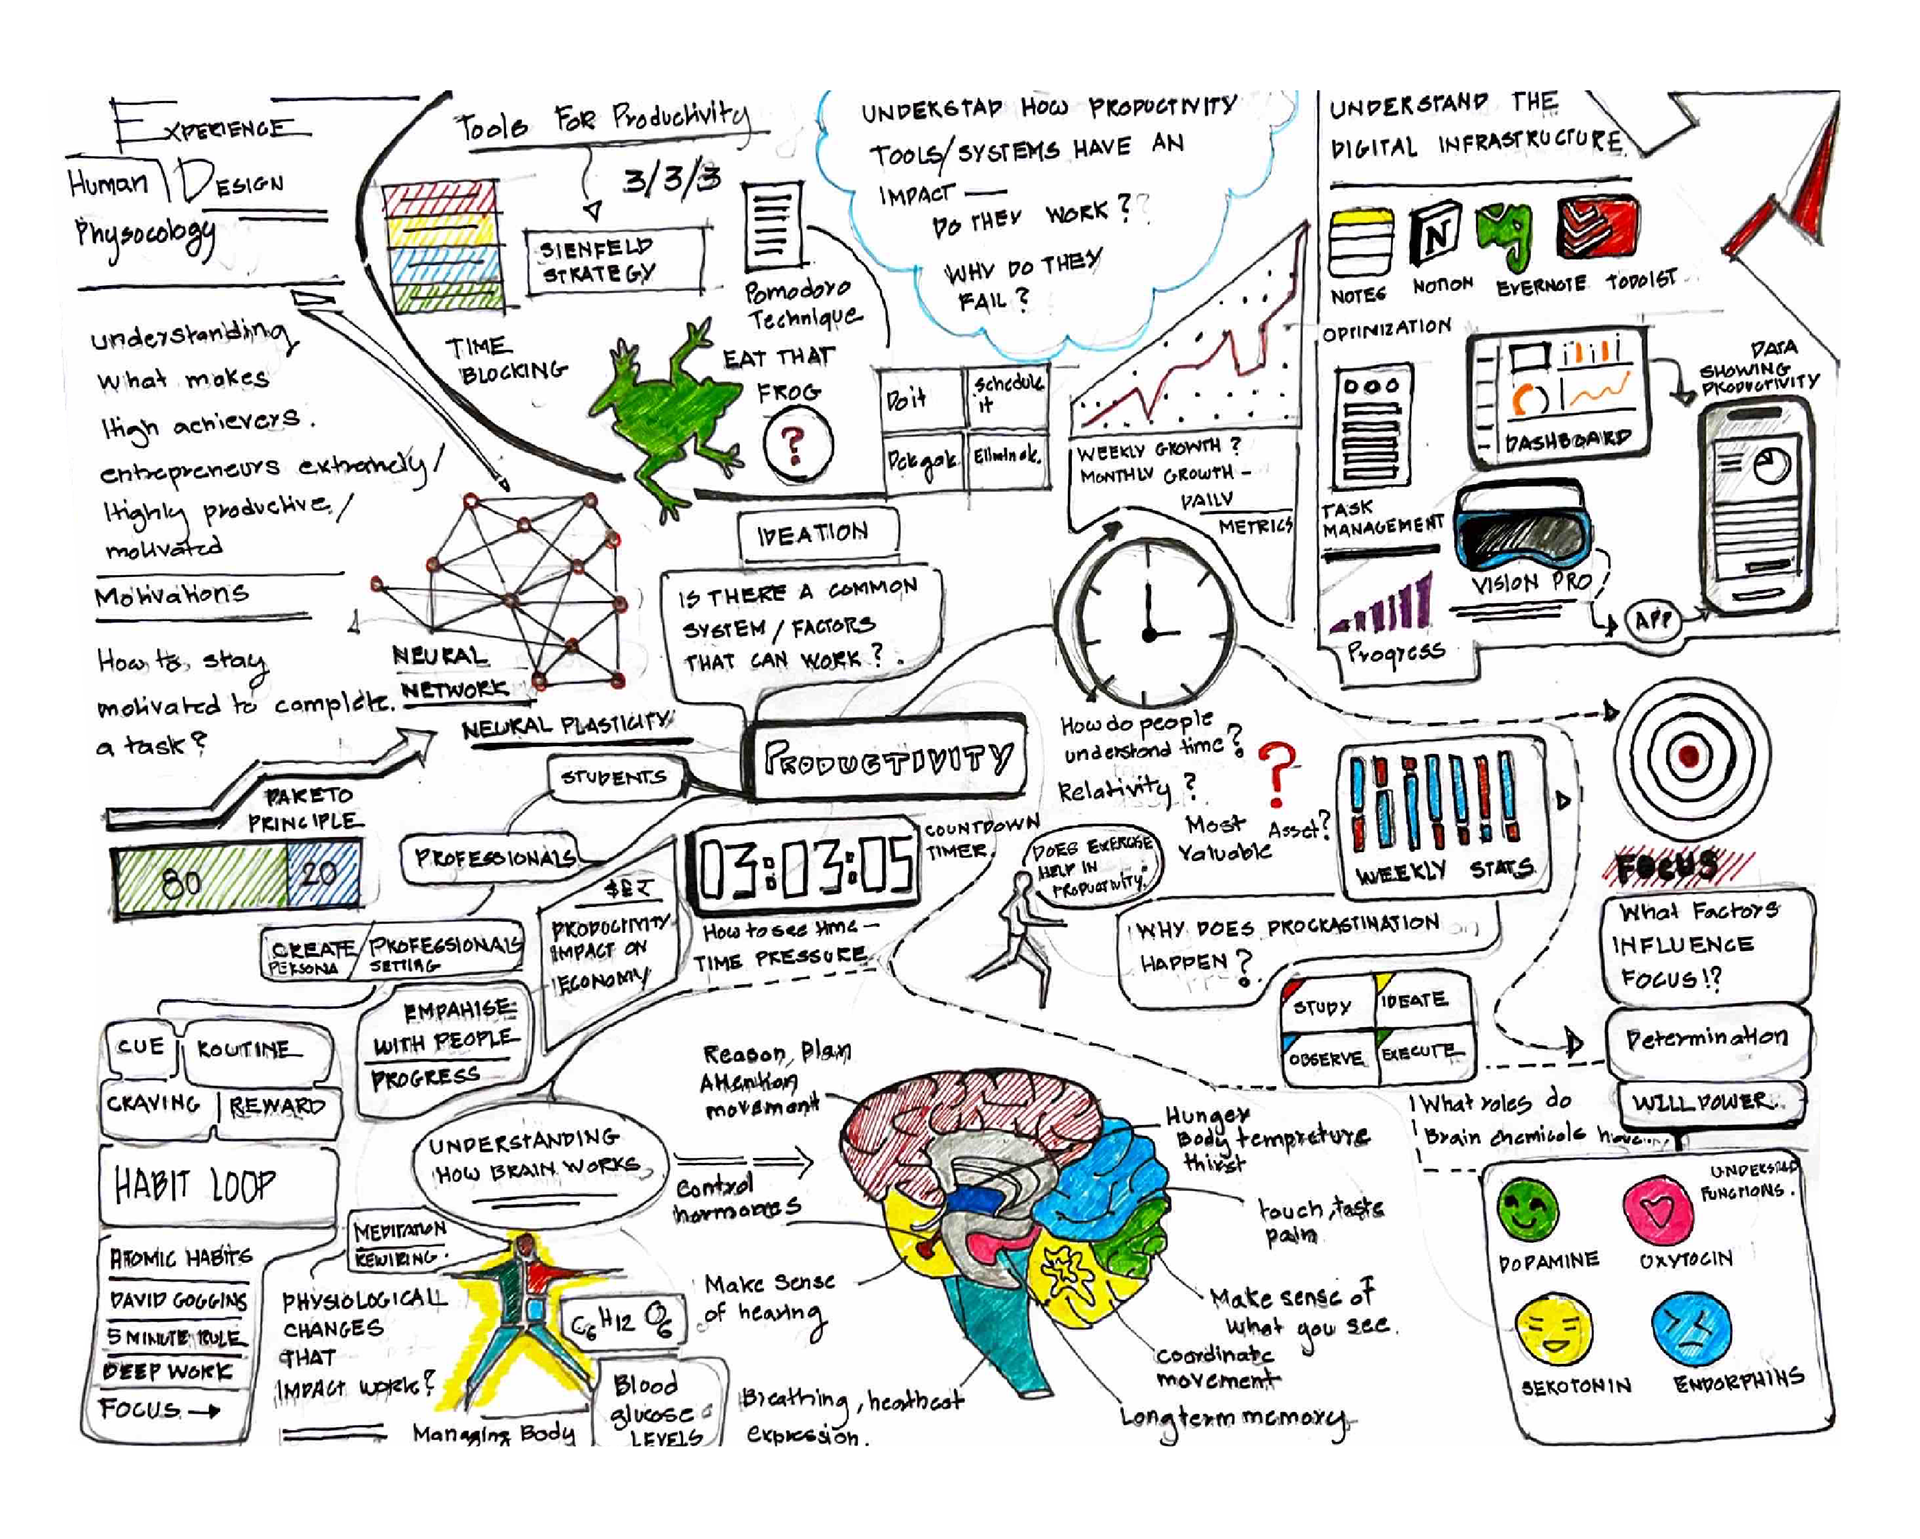 EXPERIENCE
DESIGN
Human
Physocology
understanding
what makes
High achievers.
entrepreneurs extremely/
Highly productive/
motivated
Motivations
How to stay
motivated to complete.
a task?
PARETO
PRINCIPLE
80
20
Tools FOR Productivity
3/3/3
SIENFELD
STRATEGY
TIME
BLOCKING
Pomodoro
Technique
EAT THAT
FROG
?
Do it
Schedule
it
UNDERSTAD HOW PRODUCTIVITY
TOOLS/SYSTEMS HAVE AN
IMPACT —
DO THEY WORK??
WHY DO THEY
FAIL?
WEEKLY GROWTH?
MONTHLY GROWTH -
DAILY
METRICS
UNDERSTAND THE
DIGITAL INFRASTRUCTURE
N
NOTES
NOTION
EVERNOTE
TODOIST
OPTINIZATION
DASHBOARD
DATA
SHOWING
PRODUCTIVITY
TASK
MANAGEMENT
VISION PRO
APP
Progress
NEURAL
NETWORK
NEURAL PLASTICITY
IDEATION
IS THERE A COMMON
SYSTEM/FACTORS
THAT CAN WORK?
PRODUCTIVITY
STUDENTS
PROFESSIONALS
CREATE
PERSONA
PROFESSIONALS
SETTING
EMPAHISE
WITH PEOPLE
PROGRESS
$£₹
PRODUCTIVITY
IMPACT ON
ECONOMY
03:03:05
COUNTDOWN
TIMER
How to see time -
TIME PRESSURE
How do people
understand time?
Relativity?
Most
Valuable
Asset?
?
DOES EXERCISE
HELP IN
PRODUCTIVITY.
WEEKLY STATS
WHY DOES PROCKASTINATION
HAPPEN?
STUDY
IDEATE
OBSERVE
EXECUTE
FOCUS
What Factors
INFLUENCE
FOCUS!?
Determination
WILL POWER
What roles do
Brain chemicals have
UNDERSTAD
FUNCTIONS.
DOPAMINE
OXYTOCIN
SEROTONIN
ENDORPHINS
CUE
ROUTINE
CRAVING
REWARD
HABIT LOOP
ATOMIC HABITS
DAVID GOGGINS
5 MINUTE RULE
DEEP WORK
FOCUS →
UNDERSTANDING
HOW BRAIN WORKS
MEDITATION
REWIRING.
PHYSIOLOGICAL
CHANGES
THAT
IMPACT WORK?
C6 H12 O6
Blood
glucose
LEVELS
Managing Body
Reason, Plan
Attention
movemant
Control
hormones
Make Sense
of hearing
Breathing, heartbeat
expression.
Hunger
Body tempreture
thirst
touch, taste
pain
Make sense of
what you see.
coordinate
movement
Long term memory